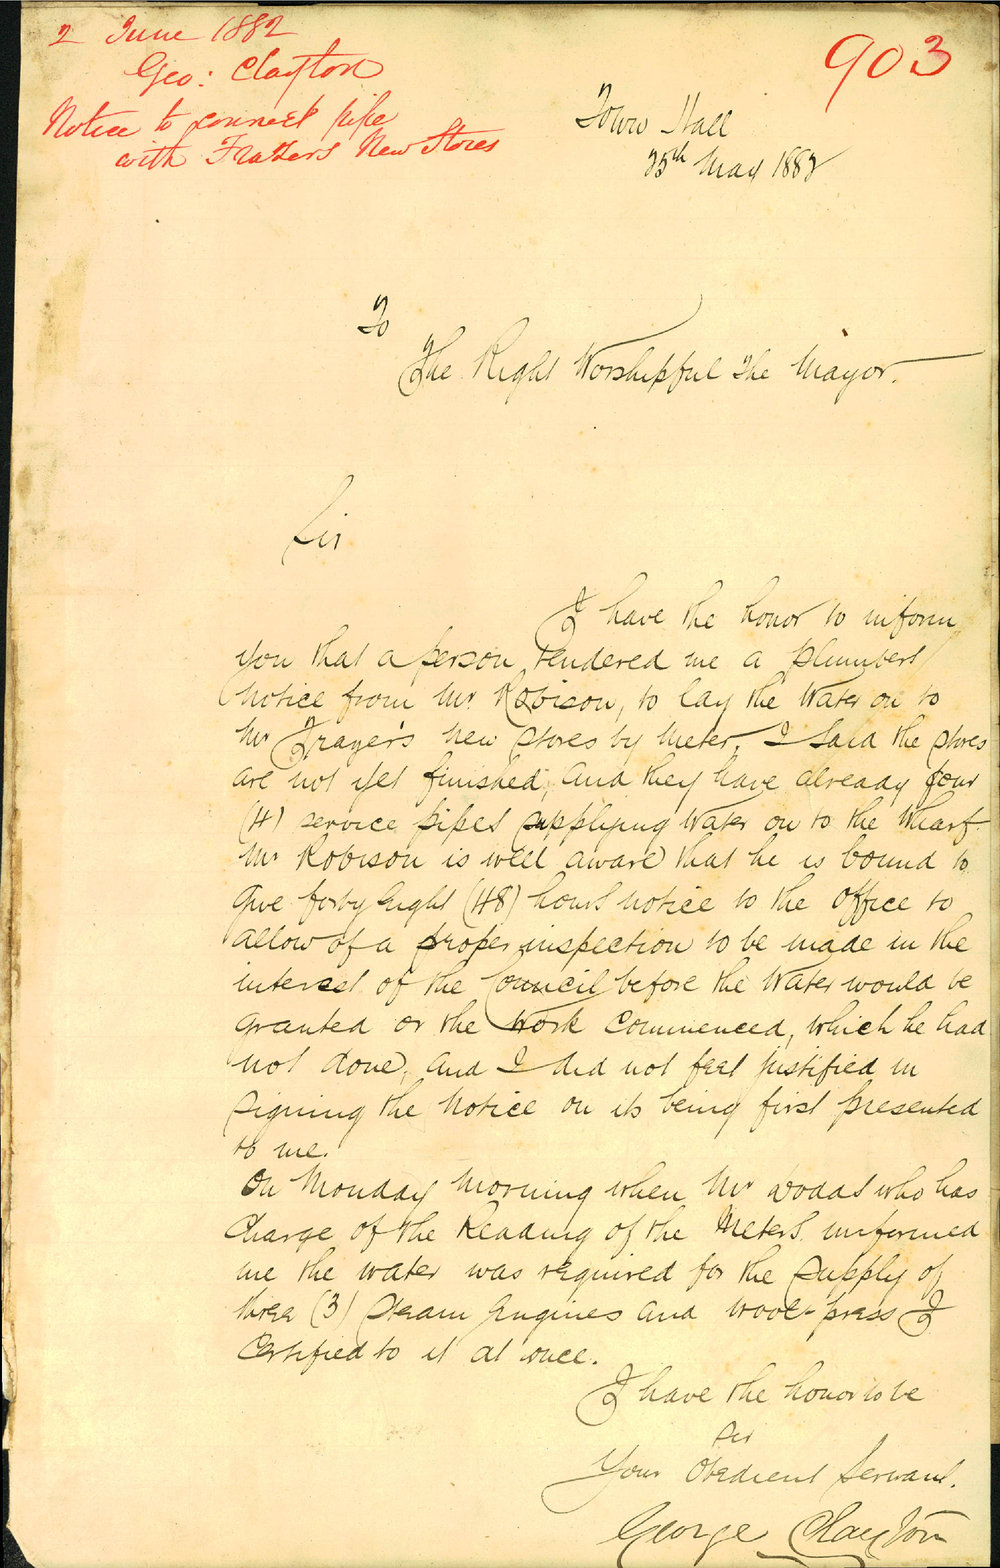 2 June 1882
Geo: Clayton
Notice to connect pipe
with Frazers New Stores
903
Town Hall
25th May 1882
To
The Right Worshipful The Mayor.
Sir
I have the honor to inform
you that a person tendered me a plumbers
notice from Mr Robison, to lay the Water on to
Mr Frazer's new stores by meter, I said the stores
are not yet finished, and they have already four
(4) service pipes supplying Water on to the Wharf
Mr Robison is well aware that he is bound to
give forty Eight (48) hours notice to the office to
allow of a proper inspection to be made in the
interest of the Council before the Water would be
granted or the Work Commenced, which he had
not done, and I did not feel justified in
signing the Notice on its being first presented
to me.
On Monday Morning when Mr Dodds who has
Charge of the Reading of the Meters informed
me the water was required for the supply of
three (3) Steam Engines and Wool-press I
Certified to it at once.
I have the honor to be
Sir
Your Obedient Servant.
George Clayton